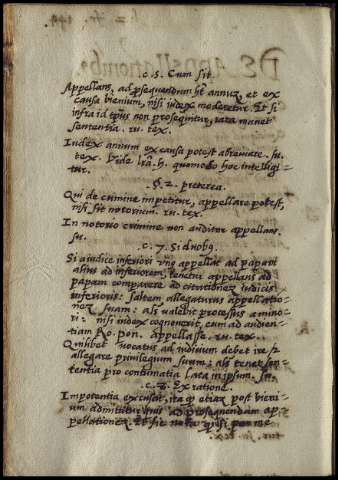 c. 5. Cum sit
Appellans, ad prosequendum ht annuz, et ex
causa bienium, nisi iudex moderetur. Et si
infra id tps non prosequitur, rata manet
sententia. ru. tex.
Iudex annum ex causa potest abreviare. su.
tex. Vide lrā. h. quamodo hoc intelligi=
tur.
§. 2. preterea.
Qui de crimine impetitur, appellare potest,
nisi sit notorium. ru. tex.
In notorio crimine non auditur appellans.
su.
c. 7. Si duobq
Si a iudice inferiori vnq appellat ad papam
alius ad inferiorem, tenetur appellans ad
papam comparere ad citationez iudicis
inferioris: saltem allegaturus appellatio=
nez suam: als valebit processus a mino=
ri: nisi iudex cognoverit, eum ad audien=
tiam Ro. pon. appellasse. ru. tex.
Quilibet vocatus ad iudicium debet ire, z
allegare privilegium suum: als tenet sen=
tentia pro contumatia lata in ipsum. su.
c. 8. Ex ratione.
Impotentia excusat, ita q etiaz post bieni=
um admittitur quis ad prosequendam ap=
pellationez. Et sic